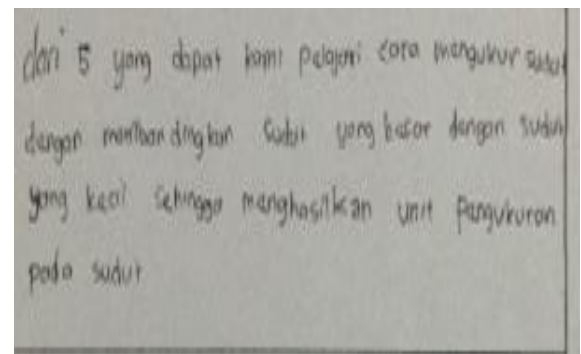 dari 5 yang dapat kami pelajari cara mengukur sudut
dengan membandingkan sudut yang besar dengan sudut
yang kecil sehingga menghasilkan unit pengukuran
pada sudut